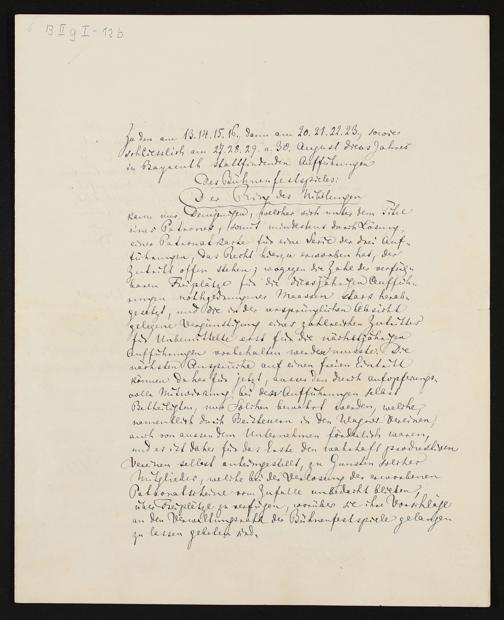 B II g I - 12b
Zu den am 13. 14. 15. 16., dann am 20. 21. 22. 23., sowie
schliesslich am 27. 28. 29. u. 30. August dieses Jahres
in Bayreuth stattfindenden Aufführungen
des Bühnenfestspieles:
Der Ring des Nibelungen
kann nur Demjenigen, welcher sich unter dem Titel
eines Patrones, somit mindestens durch Lösung
einer Patronatkarte für eine Serie der drei Auf-
führungen, das Recht hierzu erworben hat, der
Zutritt offen stehen; wogegen die Zahl der verfüg-
baren Freiplätze für die diessjährigen Aufführ-
ungen nothgedrungener Maassen stark herab-
gesetzt, und die in der ursprünglichen Absicht
gelegene Vergünstigung eines zahlreichen Zutrittes
für Unbemittelte erst für die nächstjährigen
Aufführungen vorbehalten werden musste. Die
nächsten Ansprüche auf einen freien Eintritt
können daher für jetzt, ausser den durch aufopferungs-
volle Mitwirkung bei den Aufführungen selbst
Betheiligten, nur Solchen bewahrt werden, welche,
namentlich durch Beisteuern in den Wagner-Vereinen,
auch von aussen dem Unternehmen förderlich waren,
und es ist daher für das Erste den wahrhaft productiven
Vereinen selbst anheimgestellt, zu Gunsten solcher
Mitglieder, welche bei der Verloosung der erworbenen
Patronatscheine vom Zufalle unbedacht blieben,
über Freiplätze zu verfügen, worüber sie ihre Vorschläge
an den Verwaltungsrath der Bühnenfestspiele gelangen
zu lassen gebeten sind.